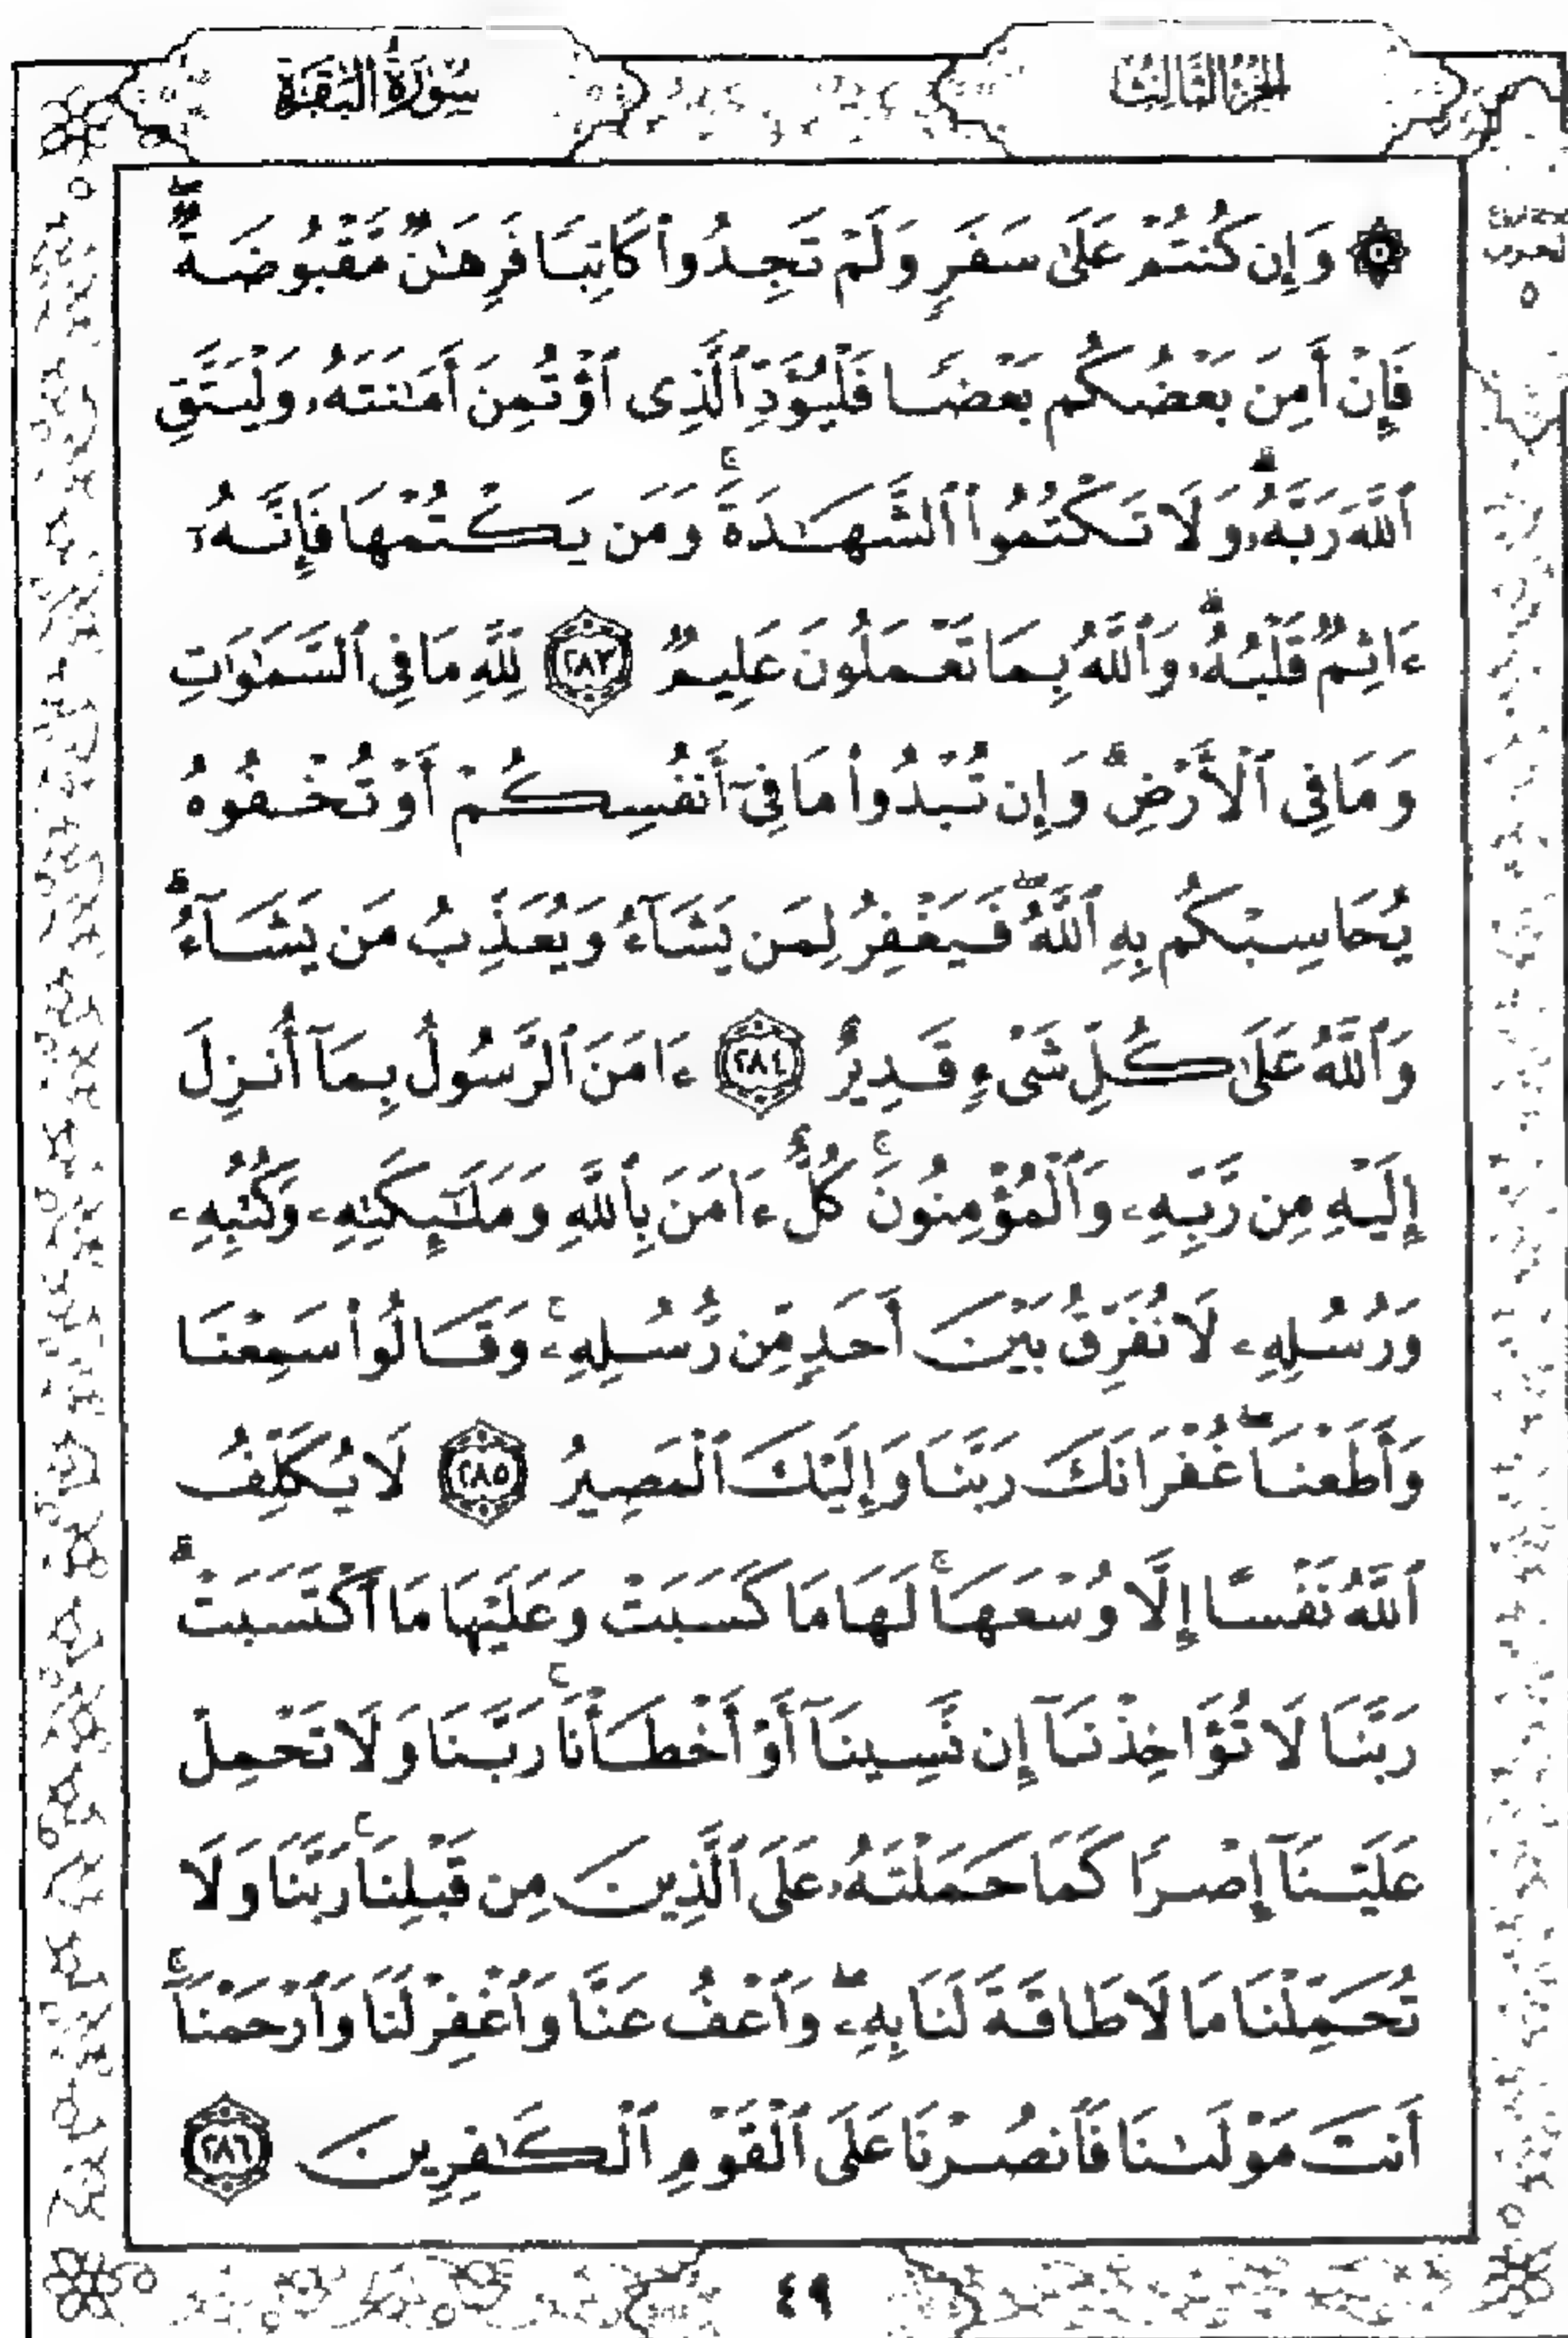 الجزء الثالث
سورة البقرة
۞ وَإِن كُنتُمْ عَلَىٰ سَفَرٍ وَلَمْ تَجِدُوا۟ كَاتِبًا فَرِهَٰنٌ مَّقْبُوضَةٌ ۖ
فَإِنْ أَمِنَ بَعْضُكُم بَعْضًا فَلْيُؤَدِّ ٱلَّذِى ٱؤْتُمِنَ أَمَٰنَتَهُۥ وَلْيَتَّقِ
ٱللَّهَ رَبَّهُۥ ۗ وَلَا تَكْتُمُوا۟ ٱلشَّهَٰدَةَ ۚ وَمَن يَكْتُمْهَا فَإِنَّهُۥٓ
ءَاثِمٌ قَلْبُهُۥ ۗ وَٱللَّهُ بِمَا تَعْمَلُونَ عَلِيمٌ ٢٨٣ لِّلَّهِ مَا فِى ٱلسَّمَٰوَٰتِ
وَمَا فِى ٱلْأَرْضِ ۗ وَإِن تُبْدُوا۟ مَا فِىٓ أَنفُسِكُمْ أَوْ تُخْفُوهُ
يُحَاسِبْكُم بِهِ ٱللَّهُ ۖ فَيَغْفِرُ لِمَن يَشَآءُ وَيُعَذِّبُ مَن يَشَآءُ ۗ
وَٱللَّهُ عَلَىٰ كُلِّ شَىْءٍ قَدِيرٌ ٢٨٤ ءَامَنَ ٱلرَّسُولُ بِمَآ أُنزِلَ
إِلَيْهِ مِن رَّبِّهِۦ وَٱلْمُؤْمِنُونَ ۚ كُلٌّ ءَامَنَ بِٱللَّهِ وَمَلَٰٓئِكَتِهِۦ وَكُتُبِهِۦ
وَرُسُلِهِۦ لَا نُفَرِّقُ بَيْنَ أَحَدٍ مِّن رُّسُلِهِۦ ۚ وَقَالُوا۟ سَمِعْنَا
وَأَطَعْنَا ۖ غُفْرَانَكَ رَبَّنَا وَإِلَيْكَ ٱلْمَصِيرُ ٢٨٥ لَا يُكَلِّفُ
ٱللَّهُ نَفْسًا إِلَّا وُسْعَهَا ۚ لَهَا مَا كَسَبَتْ وَعَلَيْهَا مَا ٱكْتَسَبَتْ ۗ
رَبَّنَا لَا تُؤَاخِذْنَآ إِن نَّسِينَآ أَوْ أَخْطَأْنَا ۚ رَبَّنَا وَلَا تَحْمِلْ
عَلَيْنَآ إِصْرًا كَمَا حَمَلْتَهُۥ عَلَى ٱلَّذِينَ مِن قَبْلِنَا ۚ رَبَّنَا وَلَا
تُحَمِّلْنَا مَا لَا طَاقَةَ لَنَا بِهِۦ ۖ وَٱعْفُ عَنَّا وَٱغْفِرْ لَنَا وَٱرْحَمْنَآ ۚ
أَنتَ مَوْلَىٰنَا فَٱنصُرْنَا عَلَى ٱلْقَوْمِ ٱلْكَٰفِرِينَ ٢٨٦
٥
٤٩